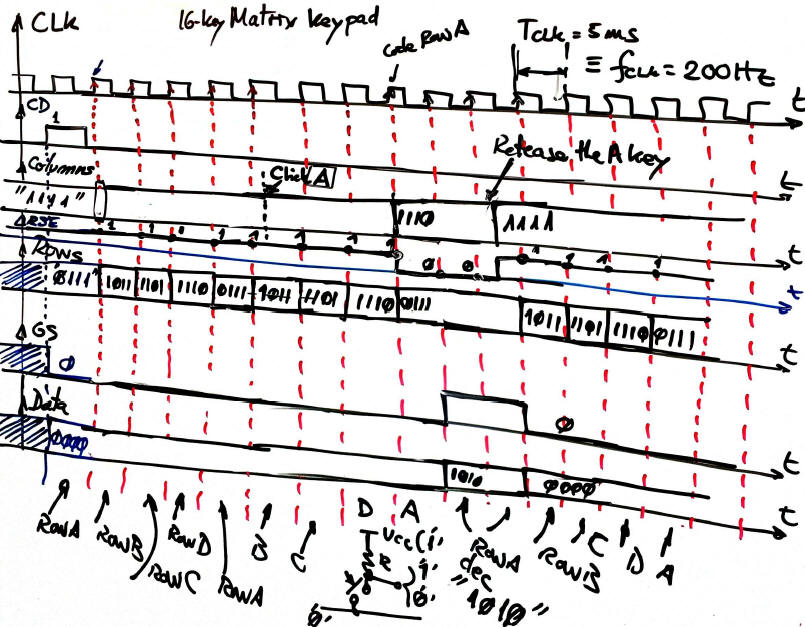 CLK
16-key Matrix keypad
Code Row A
TCLK = 5 ms
≡ fCLK = 200 Hz
t
CD
1
Release the A key
t
Columns
Click A
"1111"
1110
1111
t
1 1 1 1 1 1 1 1
Rows
0 0
1 1 1 1
t
0111 1011 1101 1110 0111 1011 1101 1110 0111
1011 1101 1110 0111
t
GS
0
0
t
Data
0000
1010
0000
t
Row A
Row B
Row C
Row D
Row A
B
C
D
A
Row A
dec
"1010"
Row B
C
D
A
Vcc (1'
R
1'
0'
0'